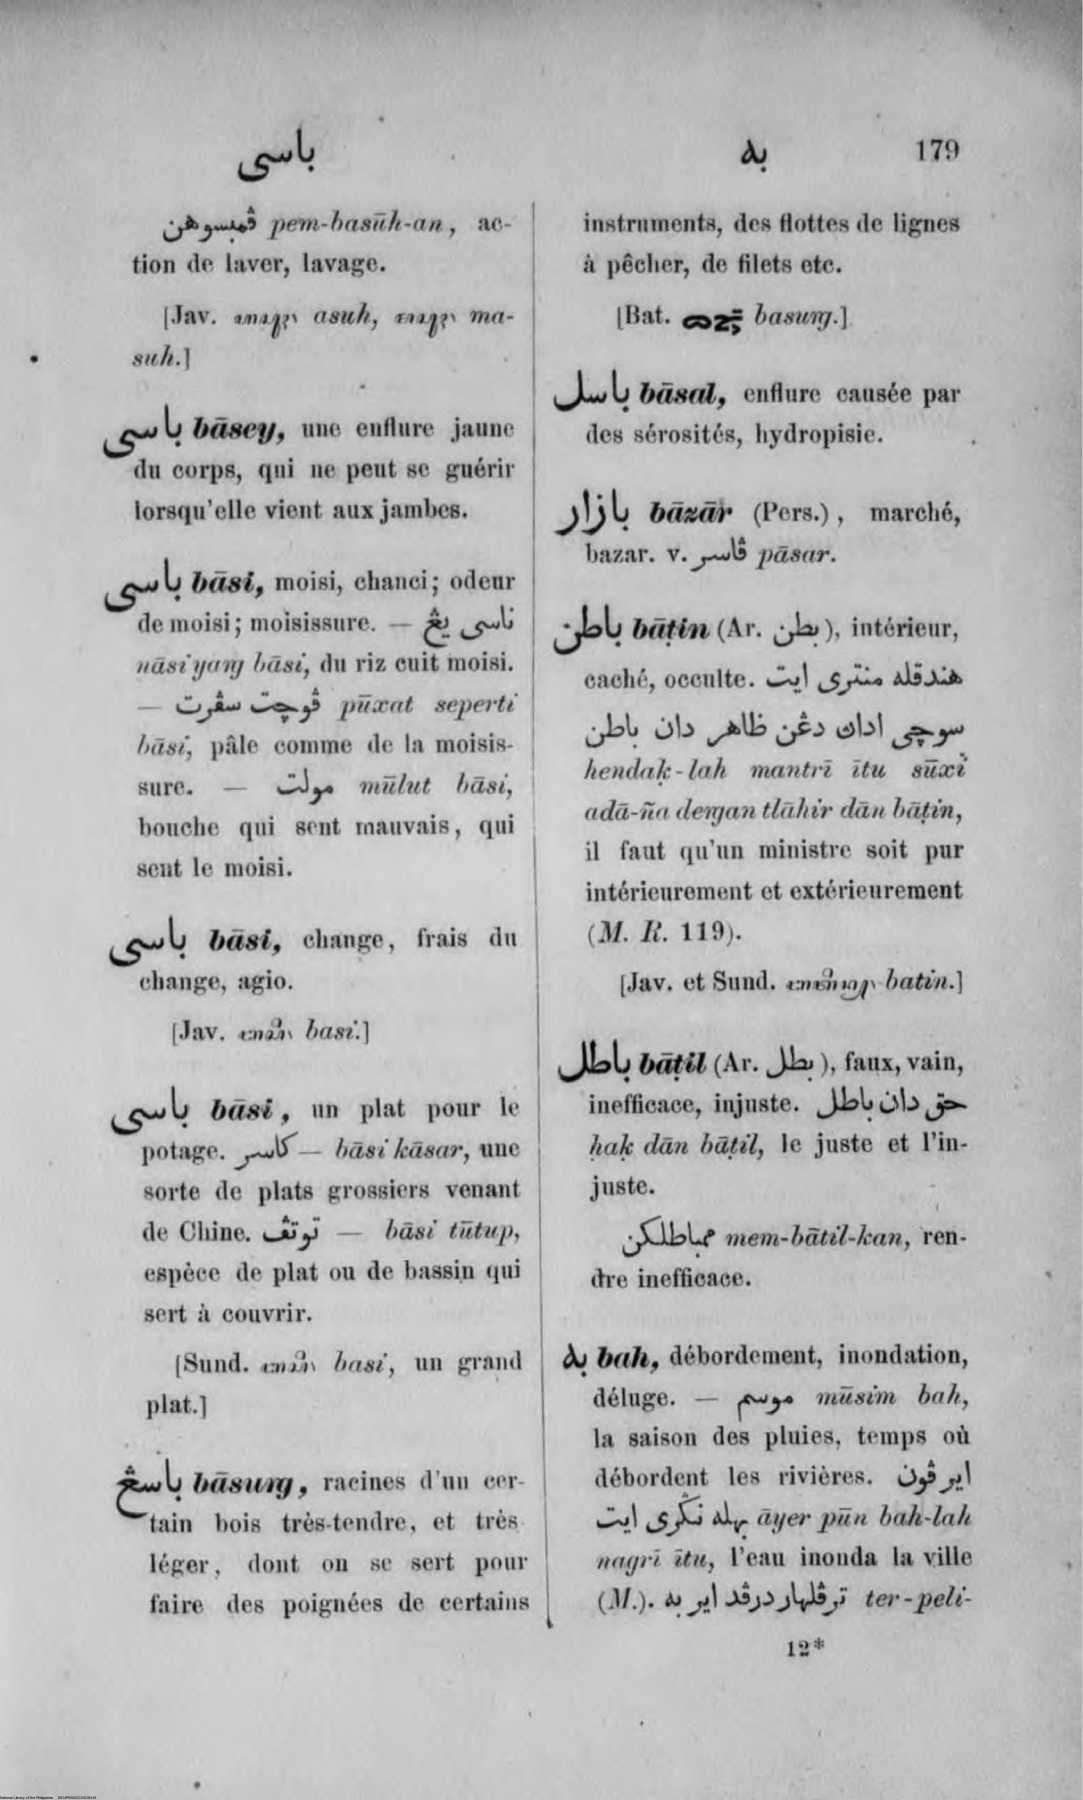 باسی
به 179
ڤمبسوهن pem-basūh-an, ac-
tion de laver, lavage.
[Jav. asuh, ma-
suh.]
باسی bāsey, une enflure jaune
du corps, qui ne peut se guérir
lorsqu'elle vient aux jambes.
باسی bāsi, moisi, chanci; odeur
de moisi; moisissure. — ناسی يڠ
nāsi yaŋ bāsi, du riz cuit moisi.
— ڤوچت سڤرت pūxat seperti
bāsi, pâle comme de la moisis-
sure. — مولت mūlut bāsi,
bouche qui sent mauvais, qui
sent le moisi.
باسی bāsi, change, frais du
change, agio.
[Jav. basi.]
باسی bāsi, un plat pour le
potage. كاسر — bāsi kāsar, une
sorte de plats grossiers venant
de Chine. توتڤ — bāsi tūtup,
espèce de plat ou de bassin qui
sert à couvrir.
[Sund. basi, un grand
plat.]
باسڠ bāsuŋ, racines d'un cer-
tain bois très-tendre, et très
léger, dont on se sert pour
faire des poignées de certains
instruments, des flottes de lignes
à pêcher, de filets etc.
[Bat. basuŋ.]
باسل bāsal, enflure causée par
des sérosités, hydropisie.
بازار bāzār (Pers.), marché,
bazar. v. ڤاسر pāsar.
باطن bāṭin (Ar. بطن), intérieur,
caché, occulte. هندقله منتری ايت
سوچی اداڽ دڠن ظاهر دان باطن
hendaḳ-lah mantrī ītu sūxi
adā-ña deŋan tlāhir dān bāṭin,
il faut qu'un ministre soit pur
intérieurement et extérieurement
(M. R. 119).
[Jav. et Sund. batin.]
باطل bāṭil (Ar. بطل), faux, vain,
inefficace, injuste. حق دان باطل
ḥaḳ dān bāṭil, le juste et l'in-
juste.
ممباطلكن mem-bāṭil-kan, ren-
dre inefficace.
به bah, débordement, inondation,
déluge. — موسم mūsim bah,
la saison des pluies, temps où
débordent les rivières. اير ڤون
بهله نݢری ايت āyer pūn bah-lah
nagrī ītu, l'eau inonda la ville
(M.). ترڤلهار درڤد اير به ter-peli-
12*